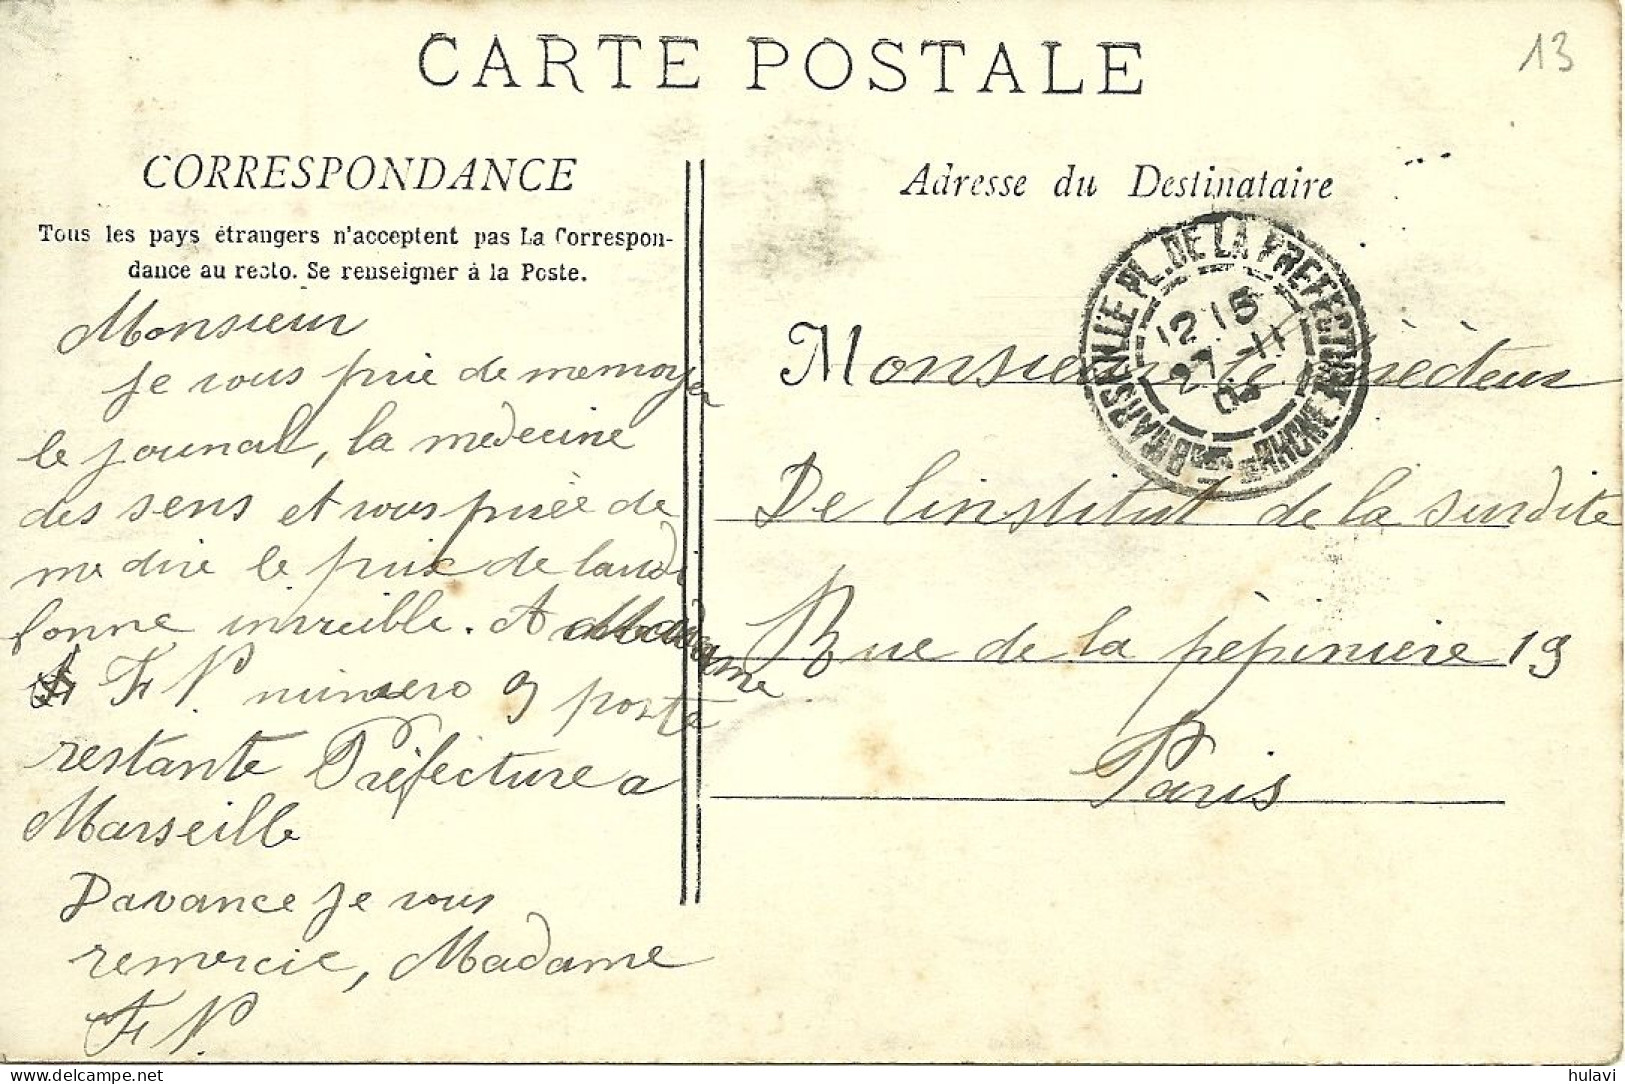 CARTE POSTALE
13
CORRESPONDANCE
Tous les pays étrangers n'acceptent pas La Correspon-
dance au recto. Se renseigner à la Poste.
Monsieur
Je vous prie de memoyer
le jounal, la medecine
des sens et vous priée de
me dire le prix de laudi
fonne invisible. A Madame
F N numero 9 poste
restante Préfecture a
Marseille
Davance je vous
remercie, Madame
F N
Adresse du Destinataire
MARSEILLE PL. DE LA PREFECTURE
BCHES DU RHONE
12 15
27 -11
Monsieur le Directeur
De l'institut de la surdite
Rue de la pépiniere 19
Paris
hulavi